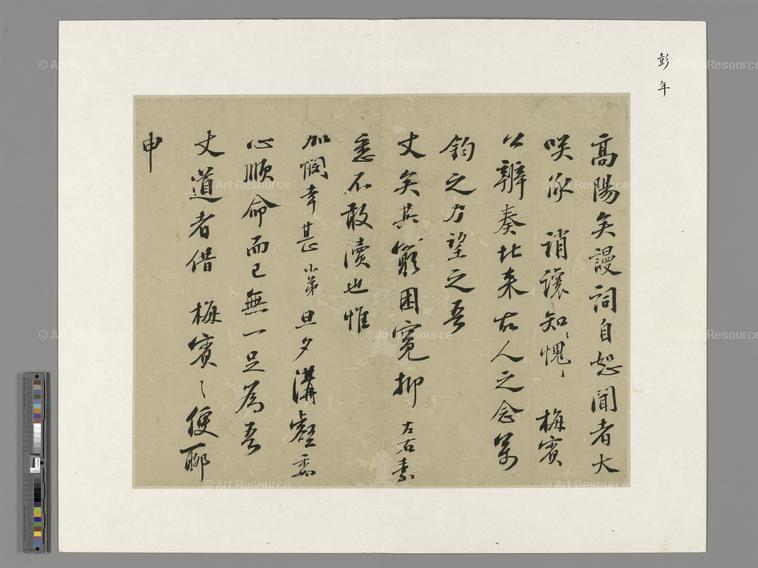 彭年
高陽矣謾詞自恕聞者大
咲 誚讓知〻愧〻 梅賓
辨奏北來故人之念萬
鈞之力望之吾
丈矣其窮困冤抑左右素
悉不敢瀆也惟
加憫幸甚小弟旦夕溝壑委
心順命而已無一足為吾
丈道者借 梅賓〻便聊
申
© Art Resource